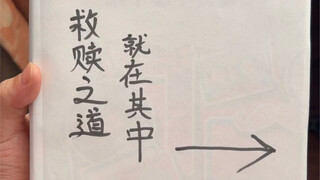 救赎之道
就在其中